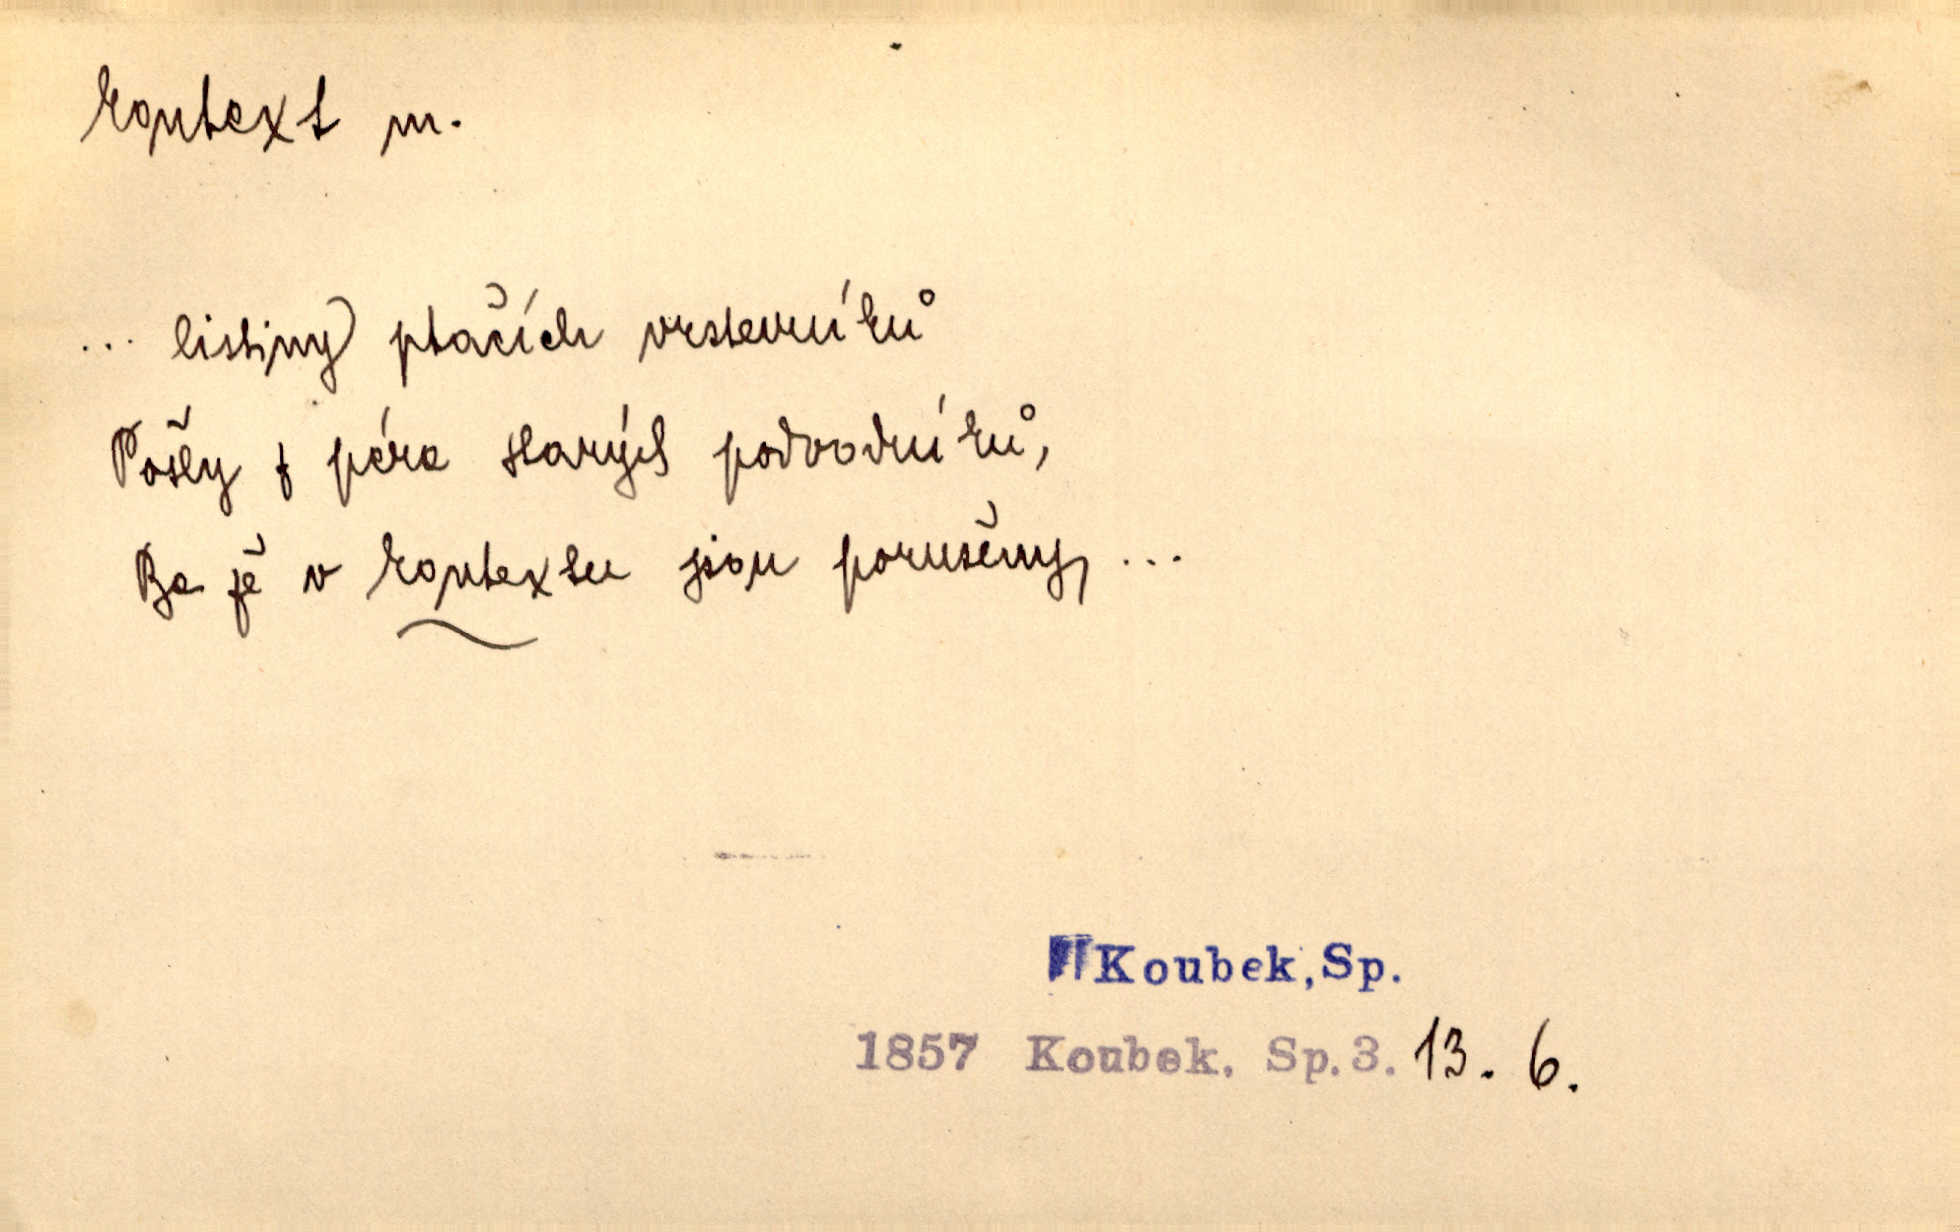 kontext m.
... listiny) ptačích vrstevníků
Pošly z péra starých podvodníků,
Ba že v kontextu jsou porušeny, ...
Koubek, Sp.
1857 Koubek. Sp. 3. 13. 6.